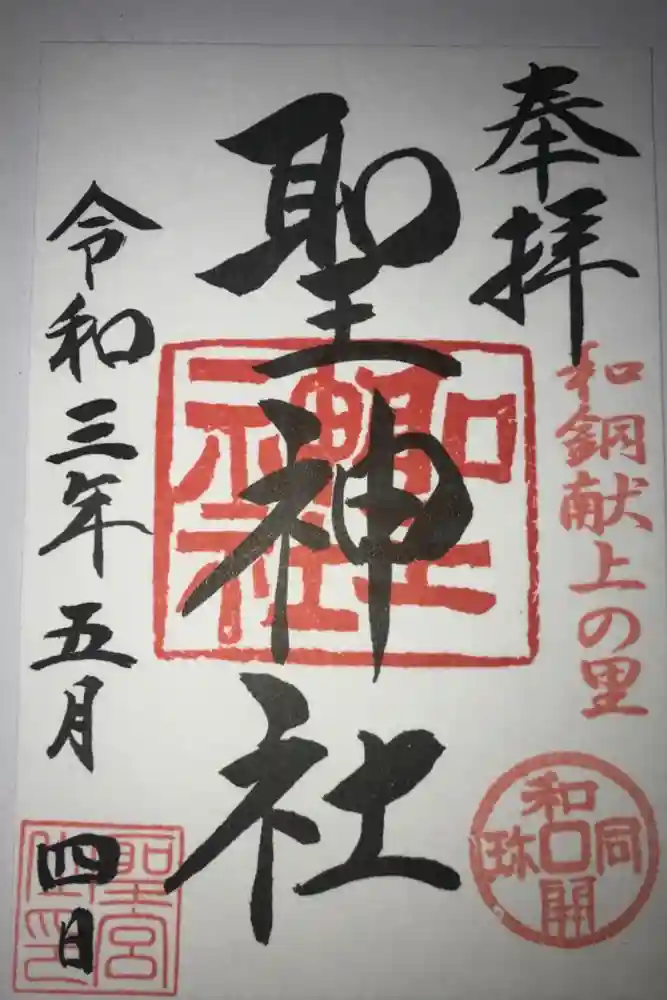 奉拝
和銅献上の里
和同開珎
聖神社
聖神社
令和三年五月四日
聖宮